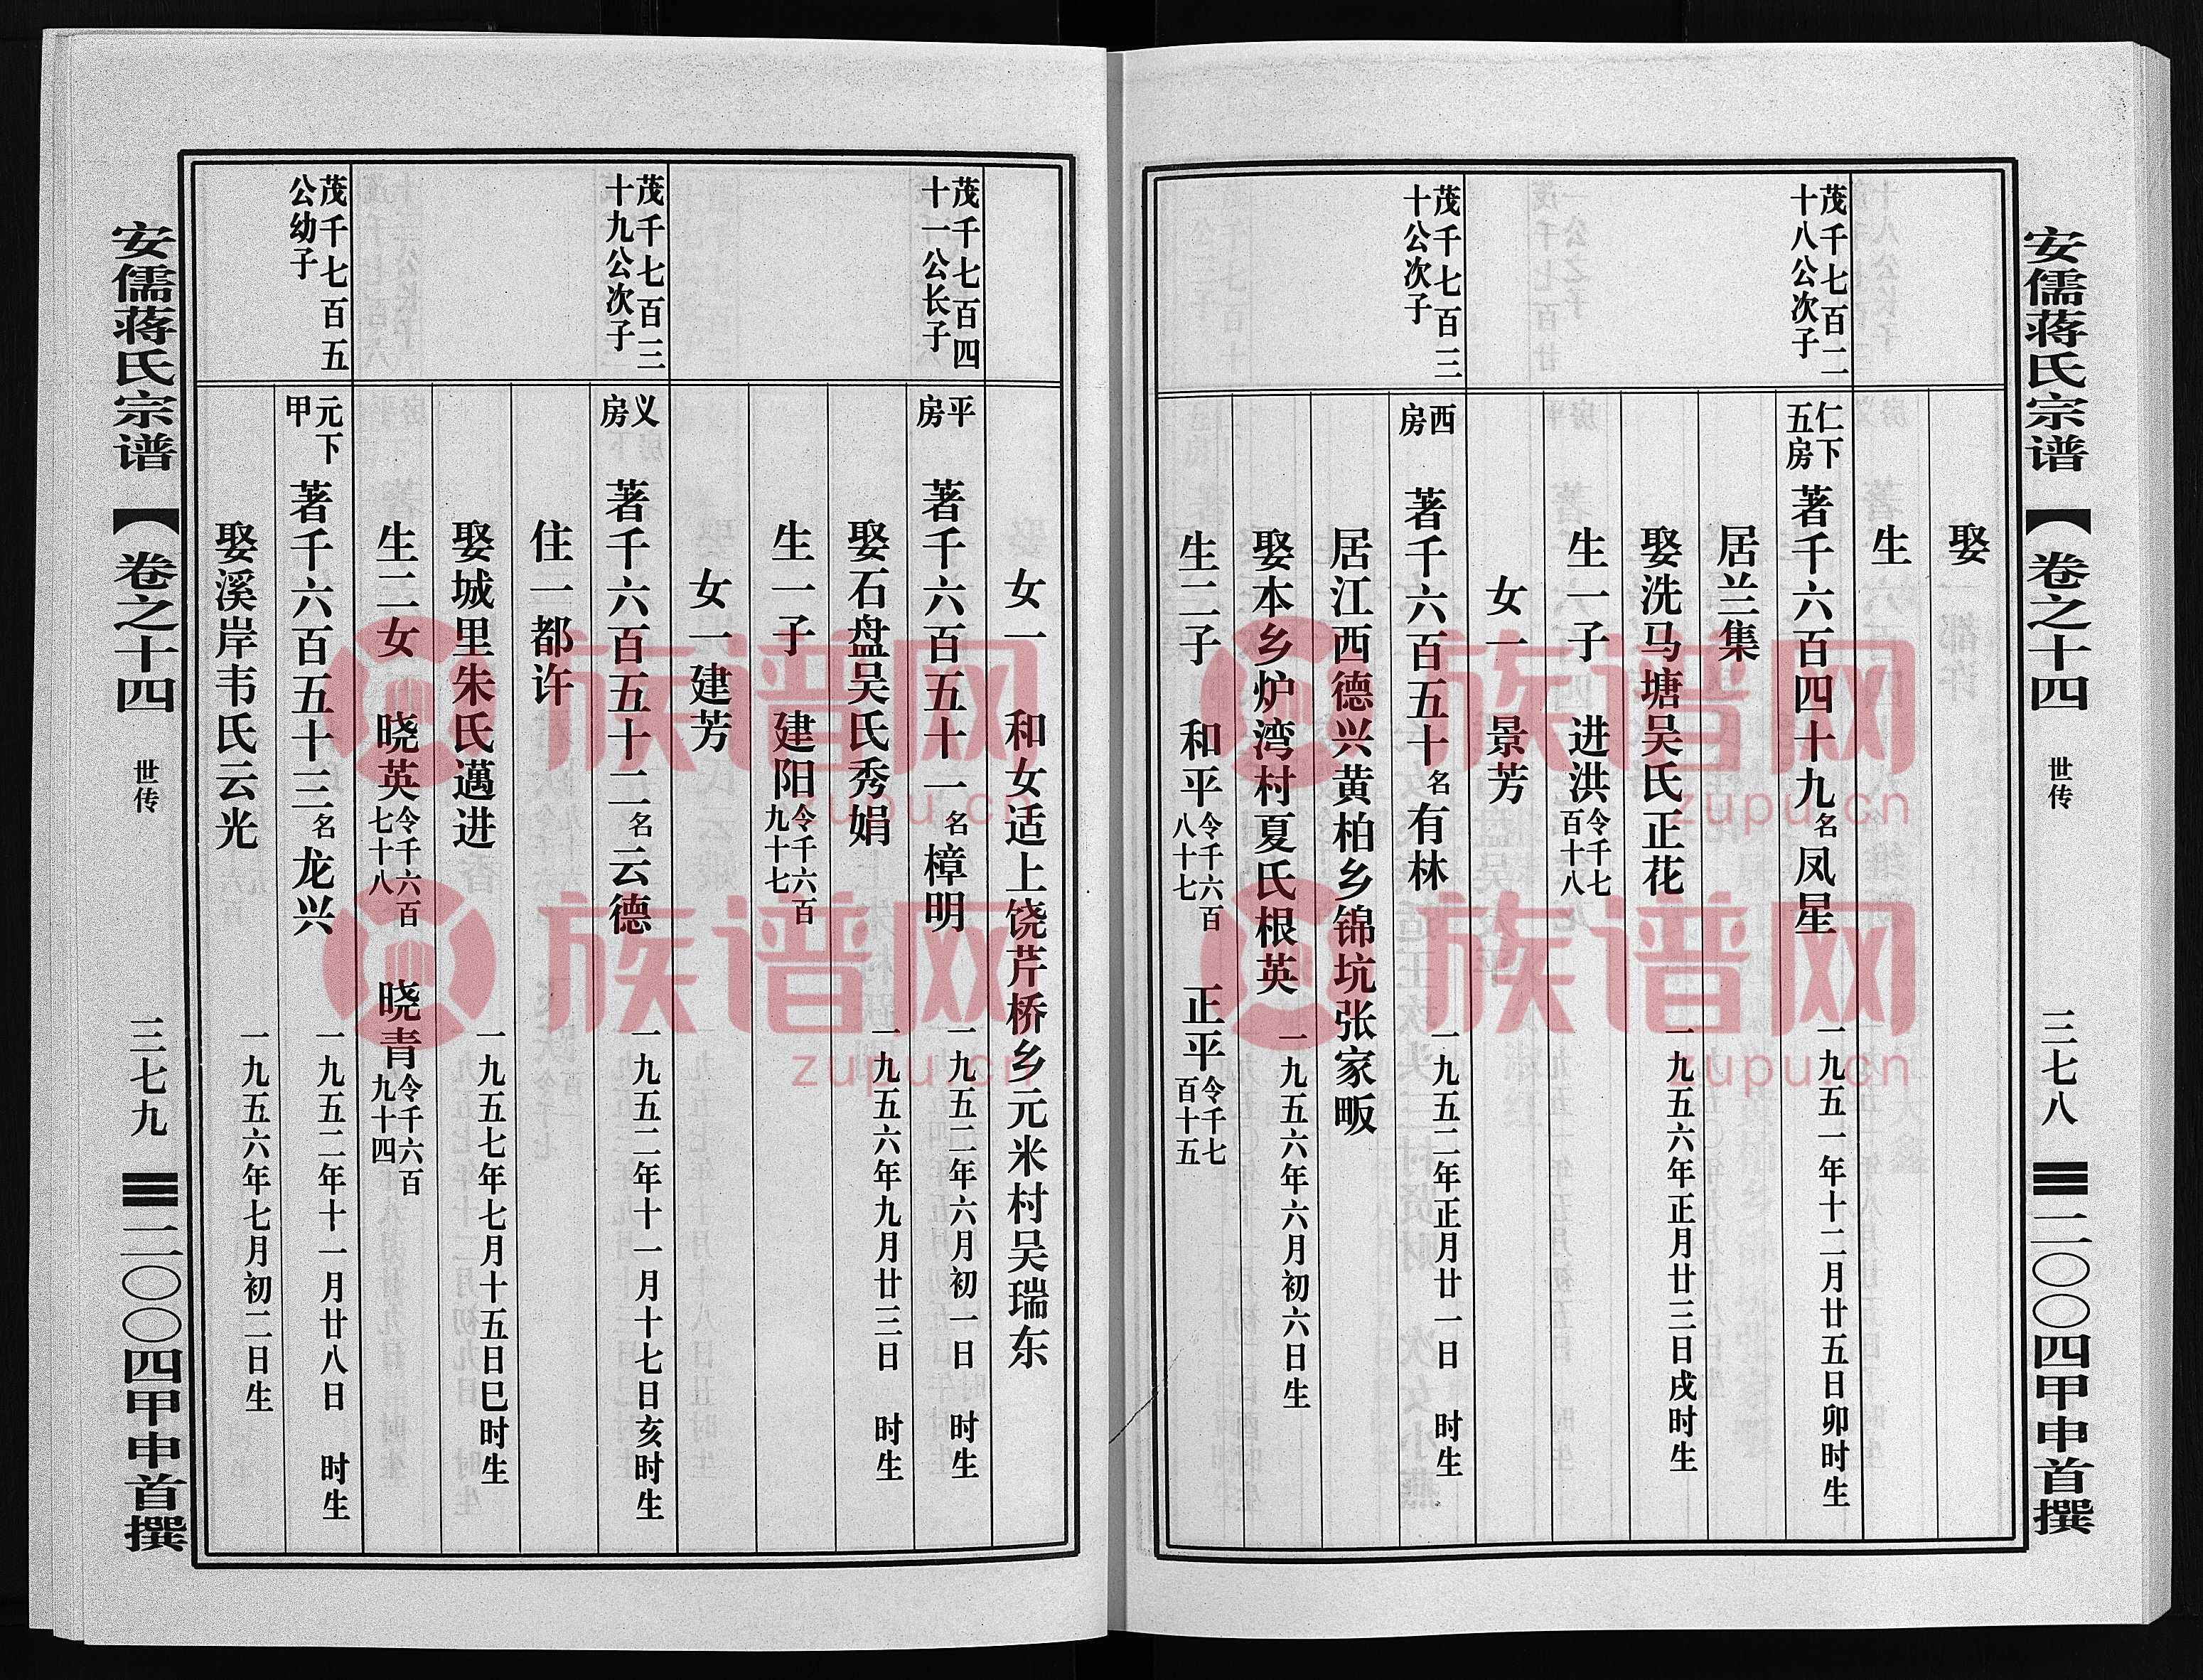 安儒蒋氏宗谱【卷之十四 世传 三七八 二〇〇四甲申首撰
娶
生
茂千七百二十八公次子
仁下五房 著千六百四十九名凤星 一九五一年十二月廿五日卯时生
居兰集
娶洗马塘吴氏正花 一九五六年正月廿三日戌时生
生一子 进洪令千七百十八
女一 景芳
茂千七百三十公次子
西房 著千六百五十名有林 一九五二年正月廿一日 时生
居江西德兴黄柏乡锦坑张家畈
娶本乡炉湾村夏氏根英 一九五六年六月初六日生
生二子 和平令千六百八十七 正平令千七百十五
女一 和女适上饶芹桥乡元米村吴瑞东
茂千七百四十一公长子
平房 著千六百五十一名樟明 一九五二年六月初一日 时生
娶石盘吴氏秀娟 一九五六年九月廿三日 时生
生一子 建阳令千六百九十七
女一建芳
茂千七百三十九公次子
义房 著千六百五十二名云德 一九五二年十一月十七日亥时生
住一都许
娶城里朱氏迈进 一九五七年七月十五日巳时生
生二女 晓英令千六百七十八 晓青令千六百九十四
茂千七百五公幼子
元下甲 著千六百五十三名龙兴 一九五二年十一月廿八日 时生
娶溪岸韦氏云光 一九五六年七月初二日生
安儒蒋氏宗谱【卷之十四 世传 三七九 二〇〇四甲申首撰
族谱网
zupu.cn
族谱网
zupu.cn
族谱网
zupu.cn
族谱网
zupu.cn